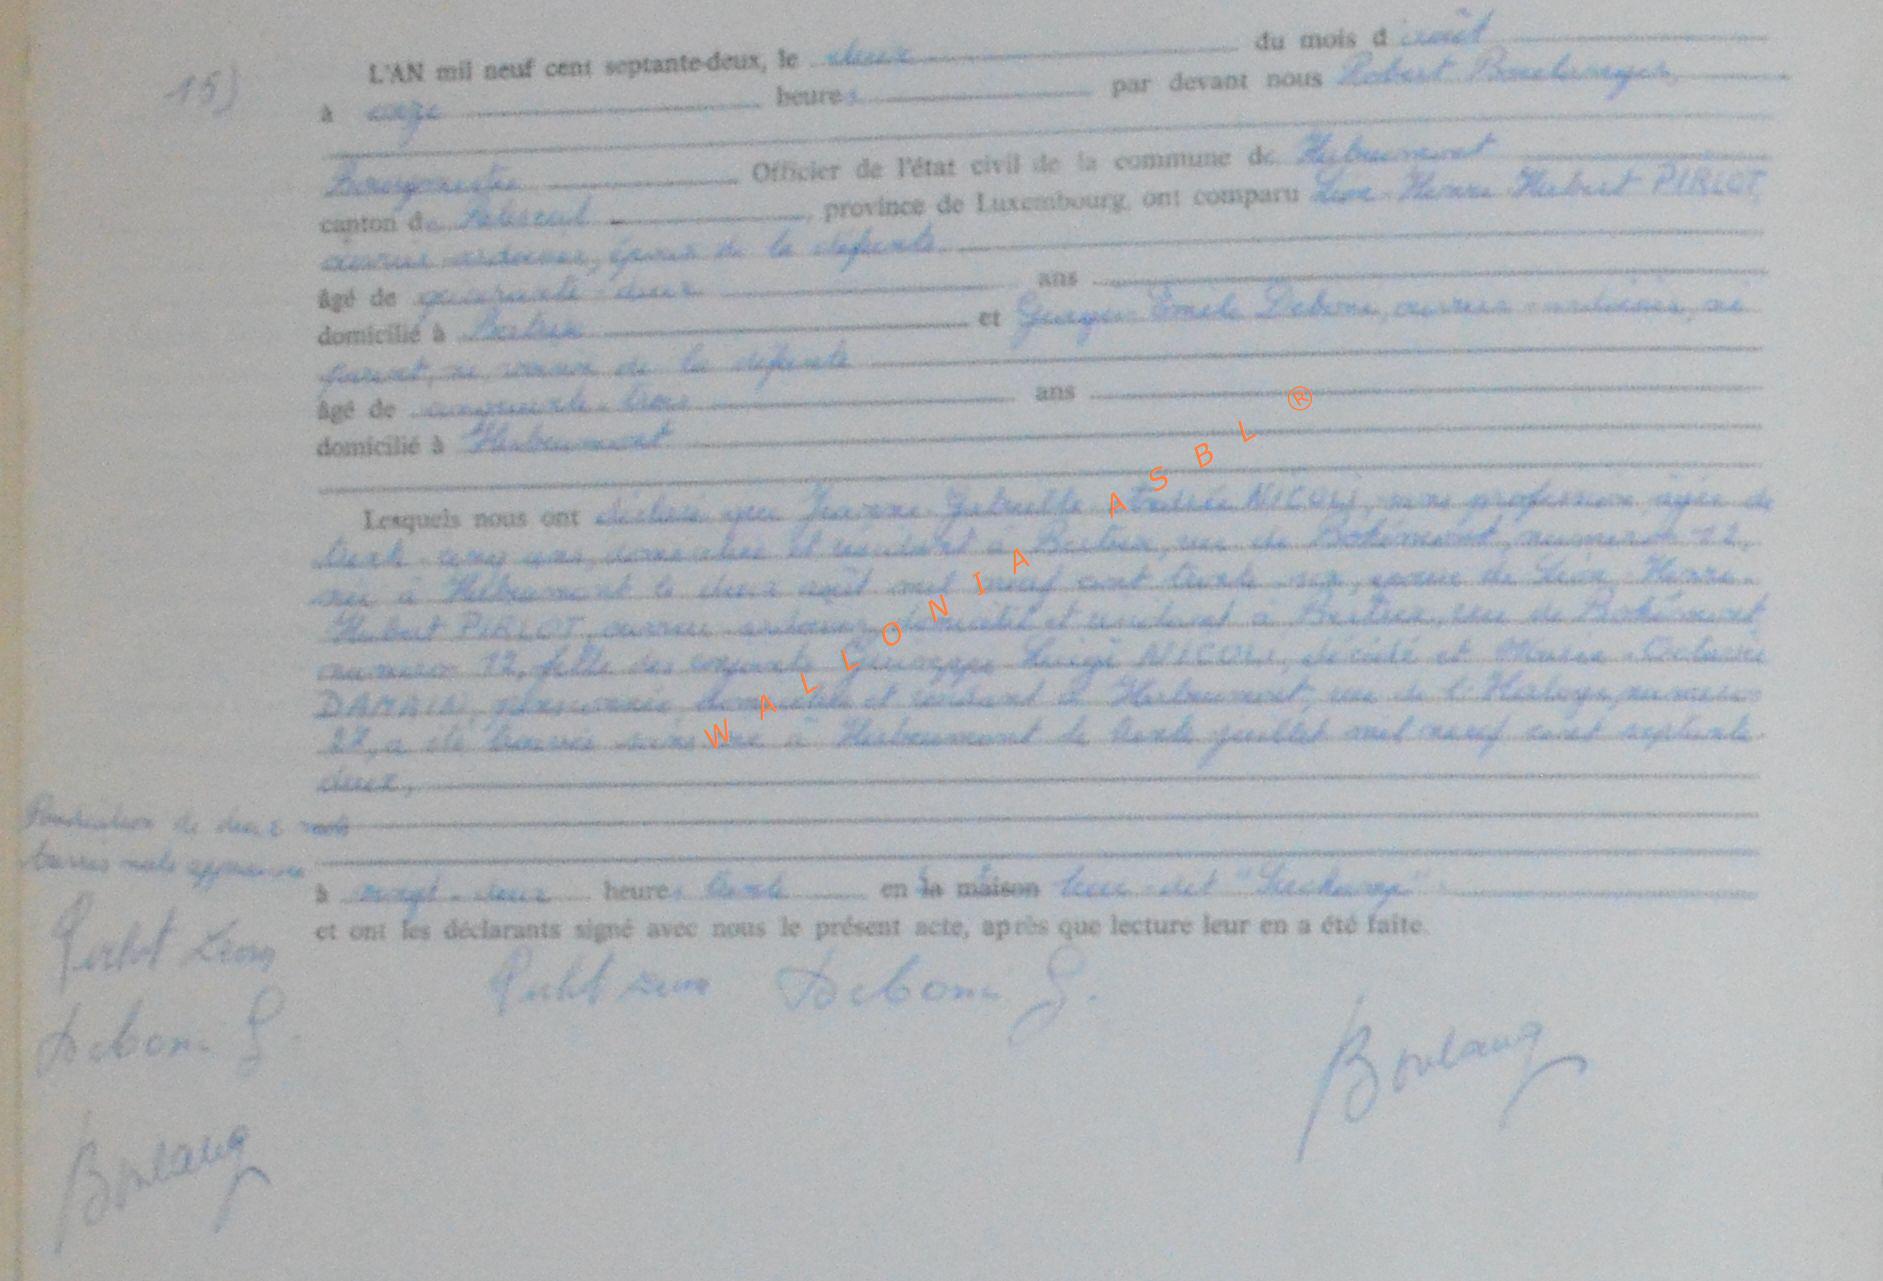 15)
L'AN mil neuf cent septante-deux, le deux du mois d'août
à onze heures par devant nous Robert Boulanger,
Bourgmestre Officier de l'état civil de la commune de Herbeumont
canton de Paliseul, province de Luxembourg, ont comparu Léon-Henri-Hubert PIRLOT,
ouvrier ardoisier, époux de la défunte
âgé de quarante-deux ans
domicilié à Bertrix et Georges-Emile Debons, ouvrier-ardoisier, ni
parent, ni voisin de la défunte
âgé de cinquante-trois ans
domicilié à Herbeumont
Lesquels nous ont déclaré que Jeanne-Gabrielle-Andrée NICOLI, sans profession, âgée de
trente-cinq ans, domiciliée et résidant à Bertrix, rue de Bohémont, numéro 12,
née à Herbeumont le deux août mil neuf cent trente-six, épouse de Léon-Henri-
Hubert PIRLOT, ouvrier ardoisier, domicilié et résidant à Bertrix, rue de Bohémont
numéro 12, fille des conjoints Giuseppe Luigi NICOLI, décédé et Maria-Octavie
pensionnée, domiciliée et résidant à Herbeumont, rue de l'Horloge, numéro
27, a été trouvée sans vie à Herbeumont le trente juillet mil neuf cent septante-
deux,
de deux mots
mots
à vingt-deux heures trente en la maison lieu-dit
et ont les déclarants signé avec nous le présent acte, après que lecture leur en a été faite.
Pirlot Léon
Pirlot Léon Debons G.
Debons G.
Boulang
Boulang
WALLONIA ASBL ®